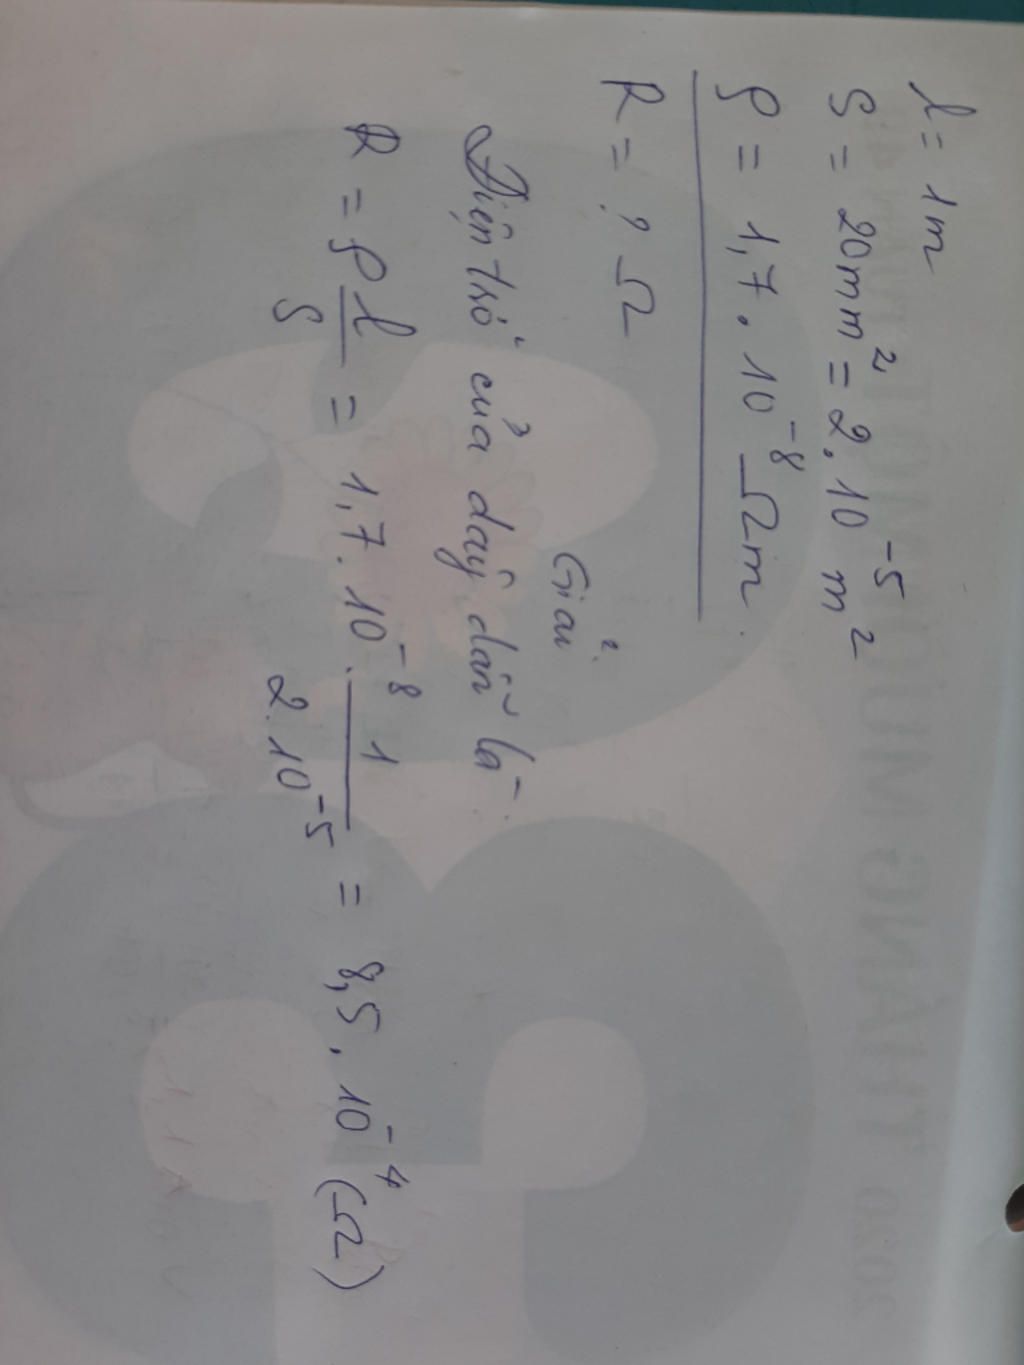 l = 1m
S = 20mm² = 2.10⁻⁵ m²
ρ = 1,7.10⁻⁸ Ωm.
R = ? Ω
Giải.
Điện trở của dây dẫn là:
R = ρ l/S = 1,7.10⁻⁸ . 1/2.10⁻⁵ = 8,5.10⁻⁴ (Ω)